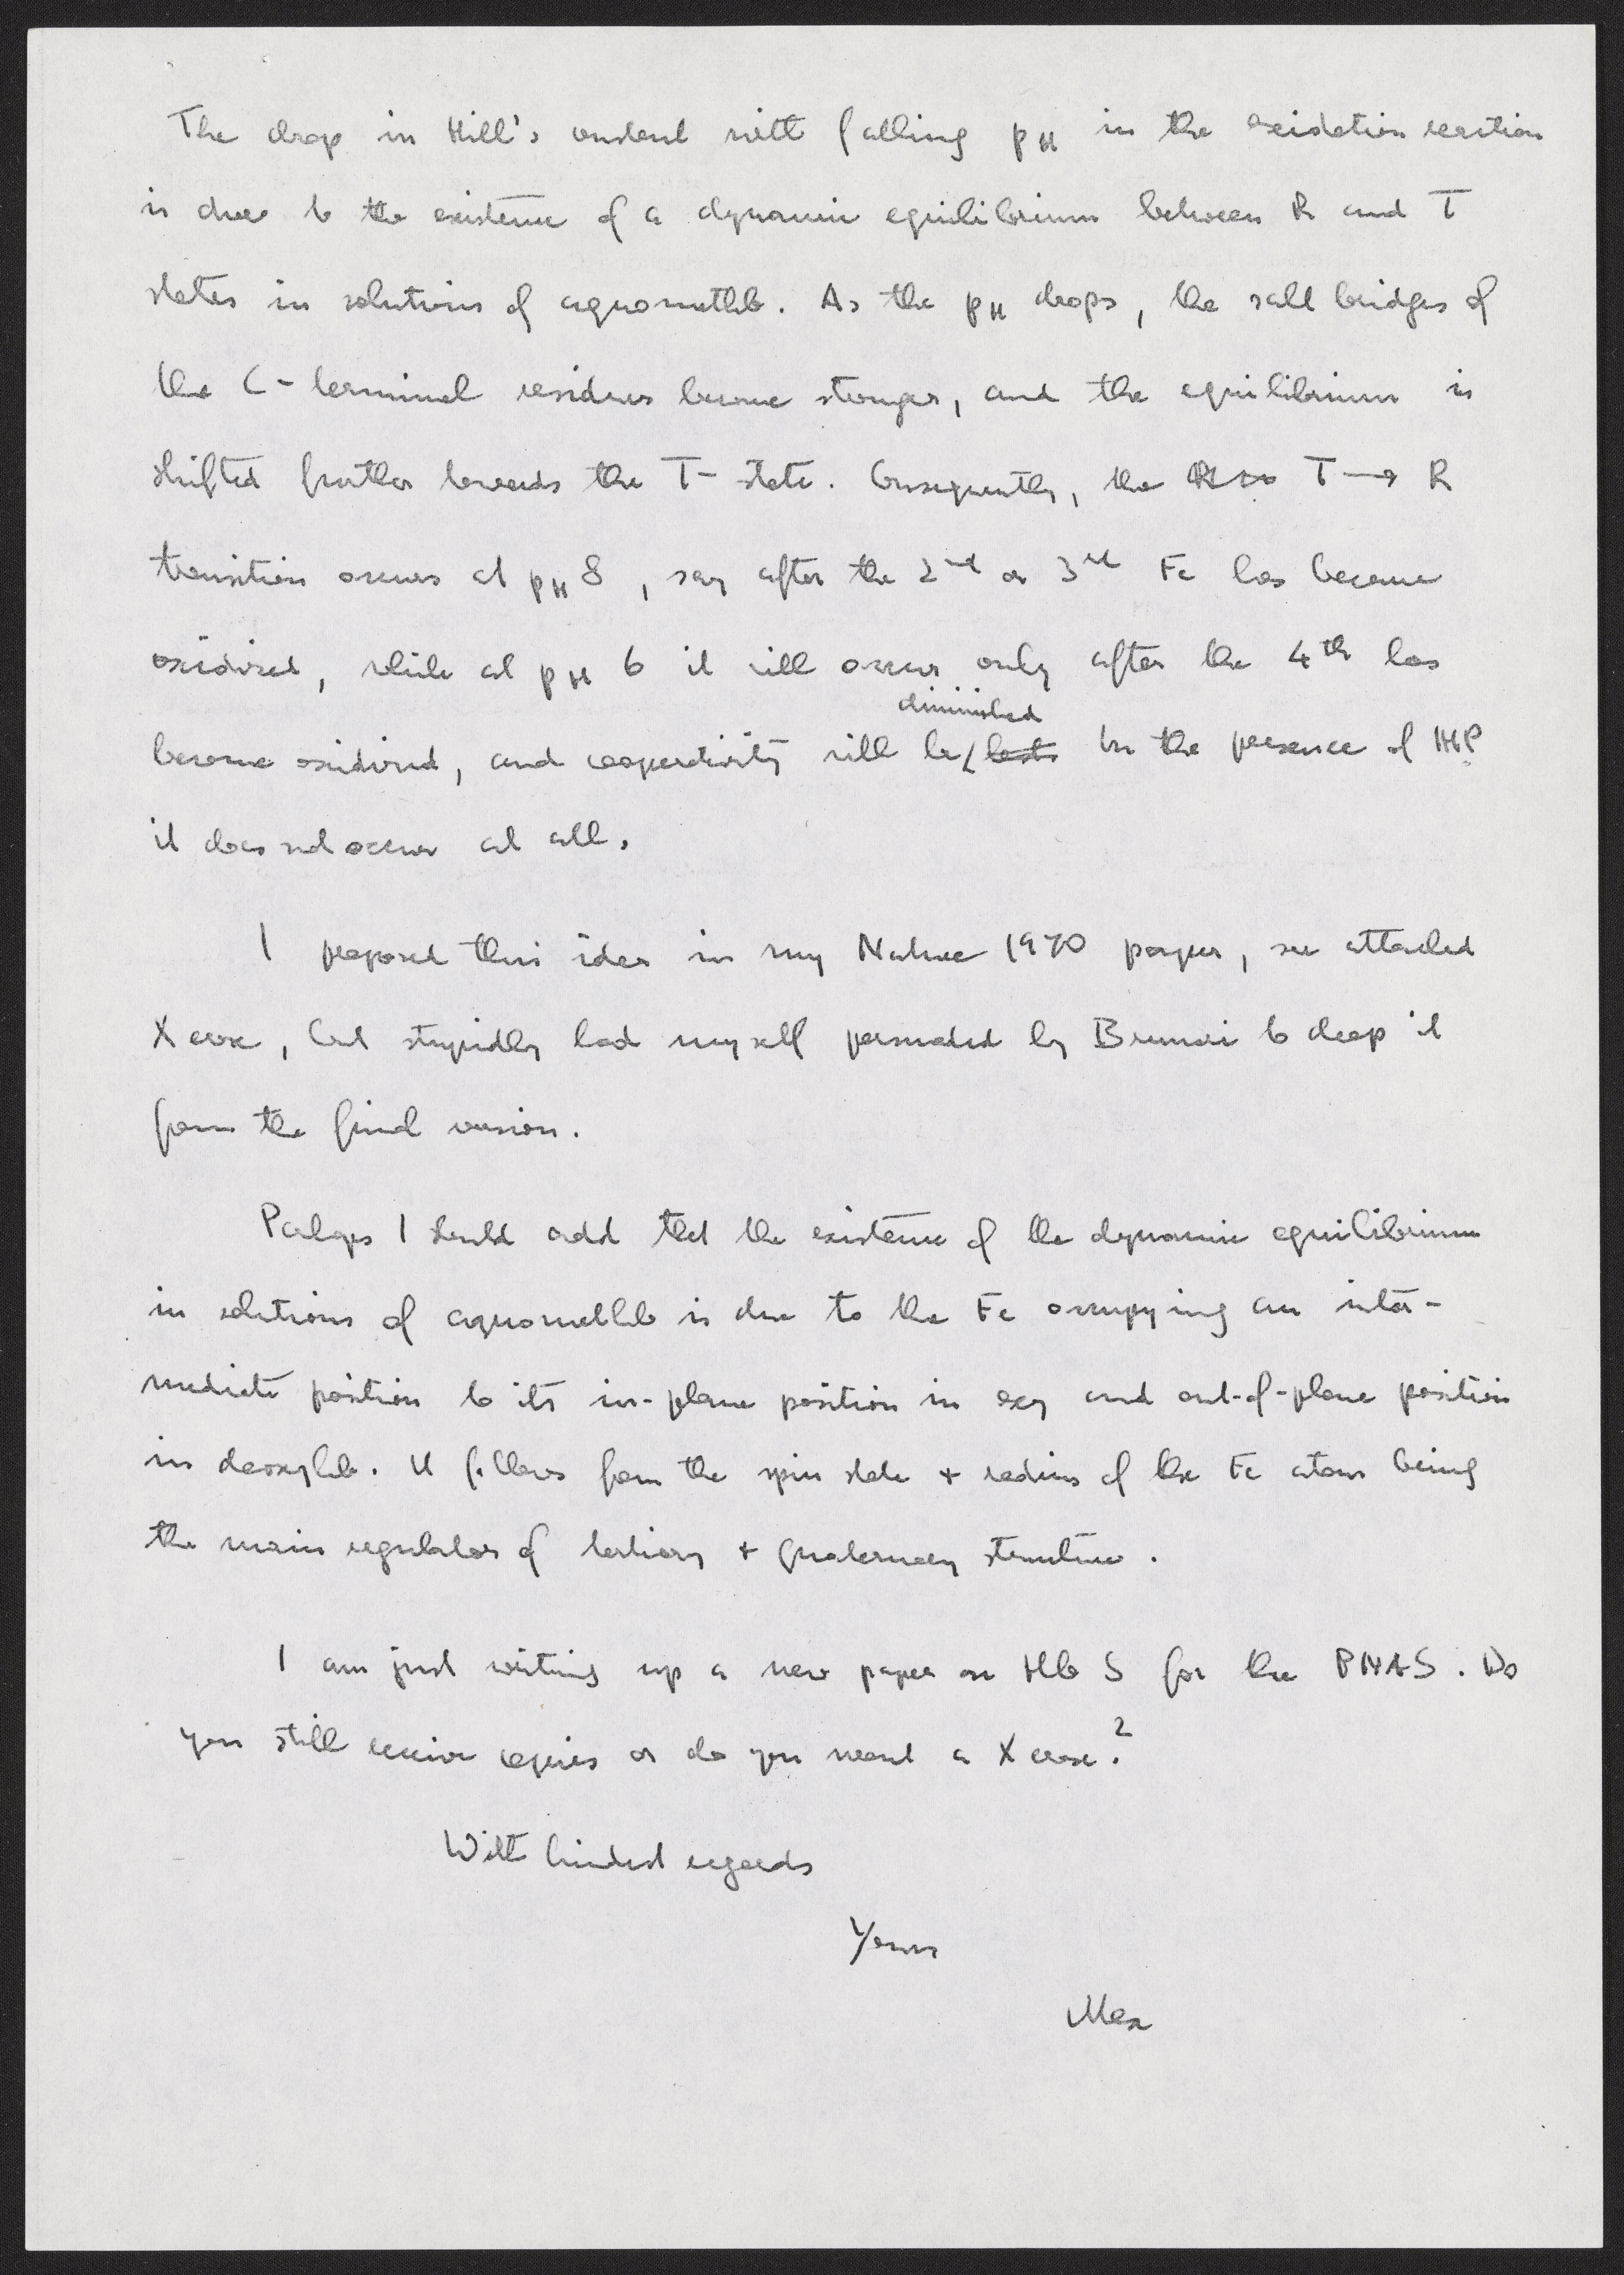 The drop in Hill's constant with falling pH in the oxidation reaction
is due to the existence of a dynamic equilibrium between R and T
states in solutions of aquometHb. As the pH drops, the salt bridges of
the C-terminal residues become stronger, and the equilibrium is
shifted further towards the T-state. Consequently, the T → R
transition occurs at pH 8, say after the 2nd or 3rd Fe has become
oxidised, while at pH 6 it will occur only after the 4th has
diminished
become oxidised, and cooperativity will be lost. In the presence of IHP
it does not occur at all.
I proposed this idea in my Nature 1970 paper, see attached
Xerox, but stupidly had myself persuaded by Brunori to drop it
from the final version.
Perhaps I should add that the existence of the dynamic equilibrium
in solutions of aquometHb is due to the Fe occupying an inter-
mediate position to its in-plane position in oxy and out-of-plane position
in deoxyHb. It follows from the spin state + radius of the Fe atom being
the main regulator of tertiary + quaternary structure.
I am just writing up a new paper on Hb S for the PNAS. Do
you still receive copies or do you want a Xerox?
With kindest regards
Yours
Max